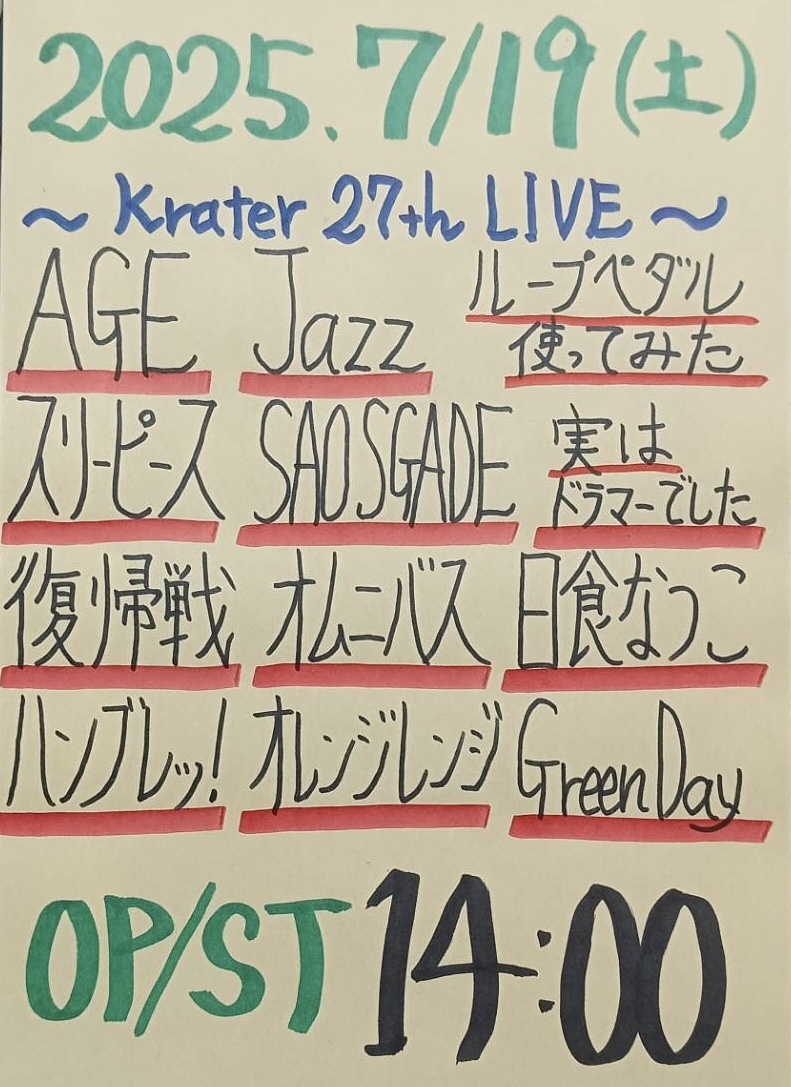 2025.7/19(土)
～Krater 27th LIVE～
AGE Jazz ループペダル
使ってみた
スリーピース SAOSGADE 実は
ドラマーでした
復帰戦 オムニバス 日食なつこ
ハンブレッ! オレンジレンジ Green Day
OP/ST 14:00